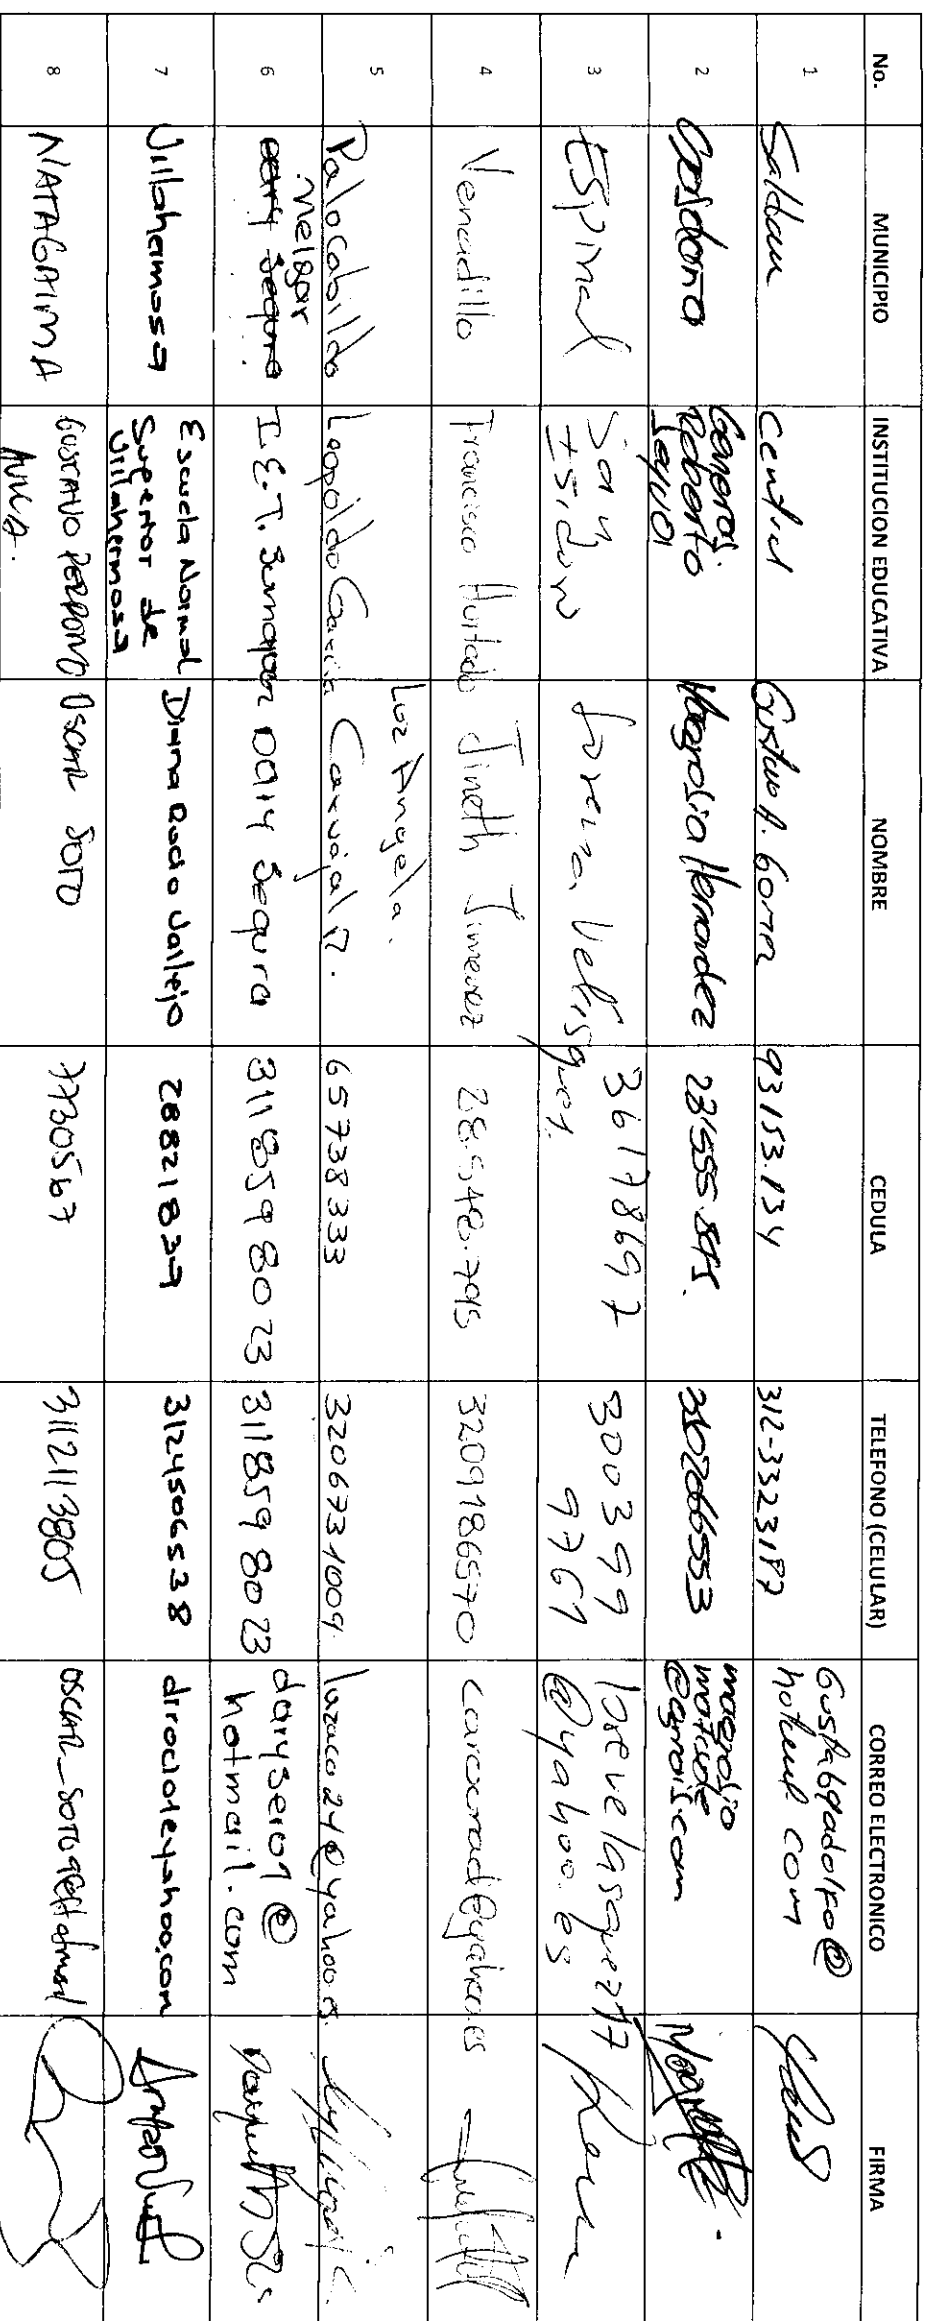 No. MUNICIPIO INSTITUCION EDUCATIVA NOMBRE CEDULA TELEFONO (CELULAR) CORREO ELECTRONICO FIRMA
1 Saldaña Central Gustavo A. 93153.134 312-3323182 Gustabqadolfo@
hotmail com
2 General
Roberto
Leyva Hernandez
3 Espinal San
Isidro Lorena Velasquez 36178697 300399
9769 lorevelasquez17
@yahoo.es
4 Venadillo Francisco Hurtado Jineth Jimenez 28.548.795 3209186570 caroxrad@yahoo.es
5 Palocabildo Leopoldo Garcia Luz Angela.
Carvajal R. 65738333 3206731009. luzaco24@yahoo.es.
6 Melgar
I.E.T. Sumapaz Dary Segura 3118598023 3118598023 darysero1@
hotmail.com
7 Villahermosa Escuela Normal
Superior de
Villahermosa Diana Rocio Vallejo 28821827 3124506538 dirocio1@yahoo.com
8 NATAGAIMA GUSTAVO PERDOMO
AVILA. OSCAR SOTO 7730567 3112113805